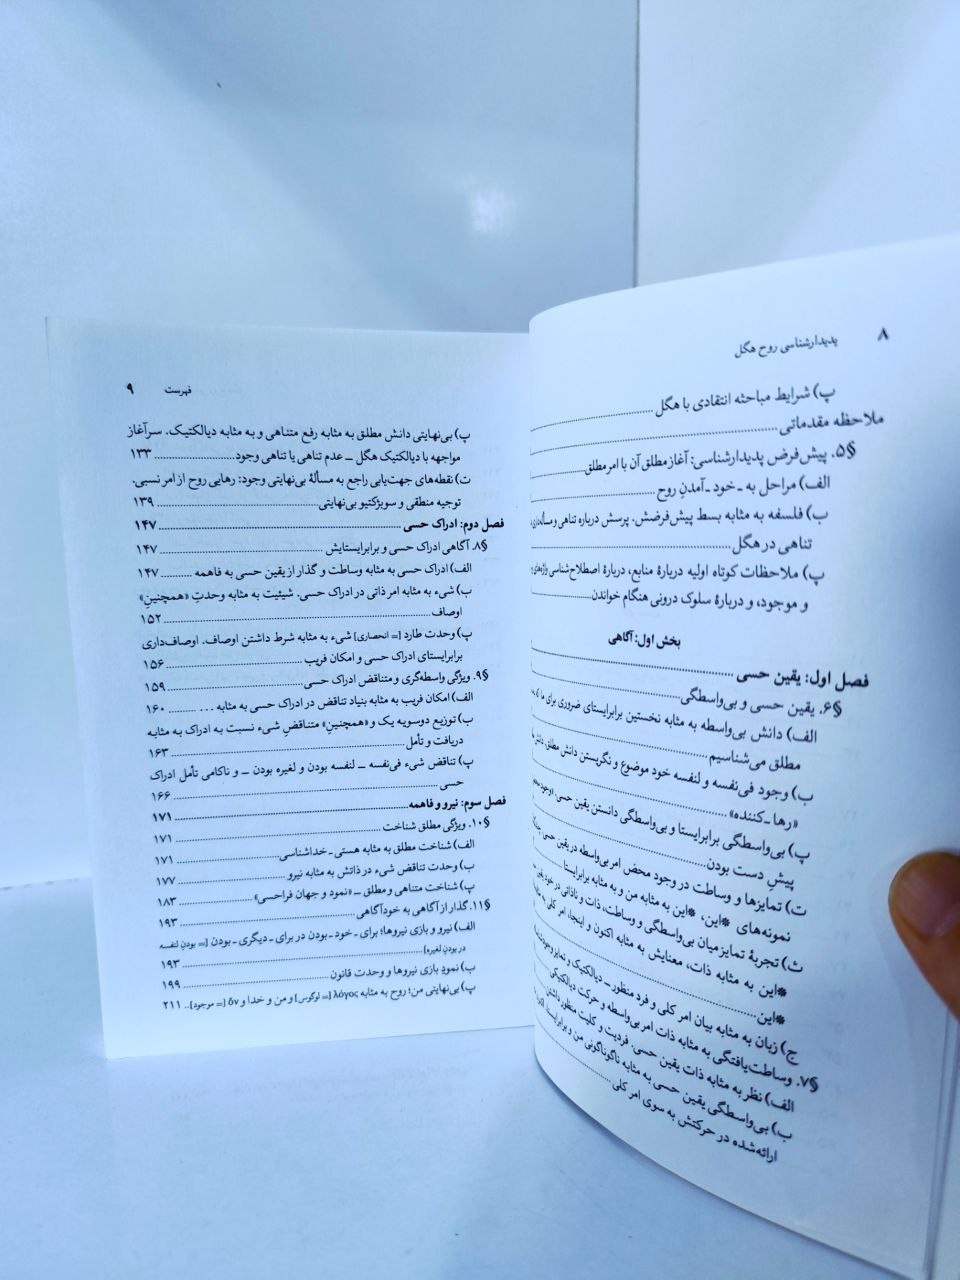 ۸ پدیدارشناسی روح هگل
پ) شرایط مباحثه انتقادی با هگل
ملاحظه مقدماتی
§۵. پیش‌فرض پدیدارشناسی: آغاز مطلق آن با امر مطلق
الف) مراحل به ـ خود ـ آمدنِ روح
ب) فلسفه به مثابه بسط پیش‌فرضش. پرسش درباره تناهی و مسأله‌ی
تناهی در هگل
پ) ملاحظات کوتاه اولیه دربارهٔ منابع، دربارهٔ اصطلاح‌شناسی واژه‌های
و موجود، و دربارهٔ سلوک درونی هنگام خواندن
بخش اول: آگاهی
فصل اول: یقین حسی
§۶. یقین حسی و بی‌واسطگی
الف) دانش بی‌واسطه به مثابه نخستین برابرایستای ضروری برای ما که
مطلق می‌شناسیم
ب) وجود فی‌نفسه و لنفسه خود موضوع و نگریستن دانش مطلق
«رها ـ کننده»
پ) بی‌واسطگی برابرایستا و بی‌واسطگی دانستن یقین حسی.
پیشِ دست بودن
ت) تمایزها و وساطت در وجود محض امر بی‌واسطه در یقین حسی.
نمونه‌های *این، *این به مثابه من و به مثابه برابرایستا
ث) تجربهٔ تمایز میان بی‌واسطگی و وساطت، ذات و ناذاتی در خود
*این به مثابه ذات، معنایش به مثابه اکنون و اینجا، امر کلی به
*این
ج) زبان به مثابه بیان امر کلی و فرد منظور ـ دیالکتیک و تمایز
§۷. وساطت‌یافتگی به مثابه ذات امر بی‌واسطه و حرکت دیالکتیکی
الف) نظر به مثابه ذات یقین حسی. فردیت و کلیت منظور داشتن
ب) بی‌واسطگی یقین حسی به مثابه ناگوناگونی من و برابرایستا.
ارائه‌شده در حرکتش به سوی امر کلی
فهرست ۹
پ) بی‌نهایتی دانش مطلق به مثابه رفع متناهی و به مثابه دیالکتیک. سرآغاز
مواجهه با دیالکتیک هگل ــ عدم تناهی یا تناهی وجود ۱۳۳
ت) نقطه‌های جهت‌یابی راجع به مسألهٔ بی‌نهایتی وجود: رهایی روح از امر نسبی.
توجیه منطقی و سوبژکتیو بی‌نهایتی ۱۳۹
فصل دوم: ادراک حسی ۱۴۷
§۸. آگاهی ادراک حسی و برابرایستایش ۱۴۷
الف) ادراک حسی به مثابه وساطت و گذار از یقین حسی به فاهمه ۱۴۷
ب) شیء به مثابه امر ذاتی در ادراک حسی. شیئیت به مثابه وحدتِ «همچنینِ»
اوصاف ۱۵۲
پ) وحدت طارد [= انحصاری] شیء به مثابه شرط داشتن اوصاف. اوصاف‌داری
برابرایستای ادراک حسی و امکان فریب ۱۵۶
§۹. ویژگی واسطه‌گری و متناقض ادراک حسی ۱۵۹
الف) امکان فریب به مثابه بنیاد تناقض در ادراک حسی به مثابه ... ۱۶۰
ب) توزیع دوسویه یک و «همچنینِ» متناقضِ شیء نسبت به ادراک به مثابه
دریافت و تأمل ۱۶۳
پ) تناقض شیء فی‌نفسه ــ لنفسه بودن و لغیره بودن ــ و ناکامی تأمل ادراک
حسی ۱۶۶
فصل سوم: نیرو و فاهمه ۱۷۱
§۱۰. ویژگی مطلق شناخت ۱۷۱
الف) شناخت مطلق به مثابه هستی ـ خداشناسی ۱۷۱
ب) وحدت تناقض شیء در ذاتش به مثابه نیرو ۱۷۷
پ) شناخت متناهی و مطلق ــ «نمود و جهان فراحسی» ۱۸۳
§۱۱. گذار از آگاهی به خودآگاهی ۱۹۳
الف) نیرو و بازی نیروها؛ برای ـ خود ـ بودن در برای ـ دیگری ـ بودن [= بودنِ لنفسه
در بودنِ لغیره] ۱۹۳
ب) نمودِ بازی نیروها و وحدت قانون ۱۹۹
پ) بی‌نهایتی من؛ روح به مثابه λόγος [= لوگوس] و من و خدا و ὄν [= موجود] ۲۱۱